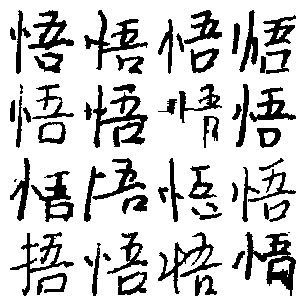 悟悟悟悟
悟悟悟悟
悟悟悟悟
捂悟悟悟